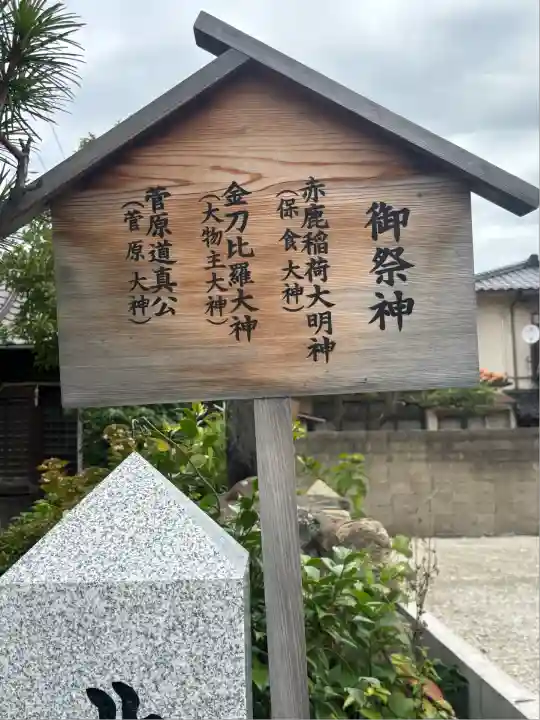 御祭神
赤鹿稲荷大明神
(保食大神)
金刀比羅大神
(大物主大神)
菅原道真公
(菅原大神)